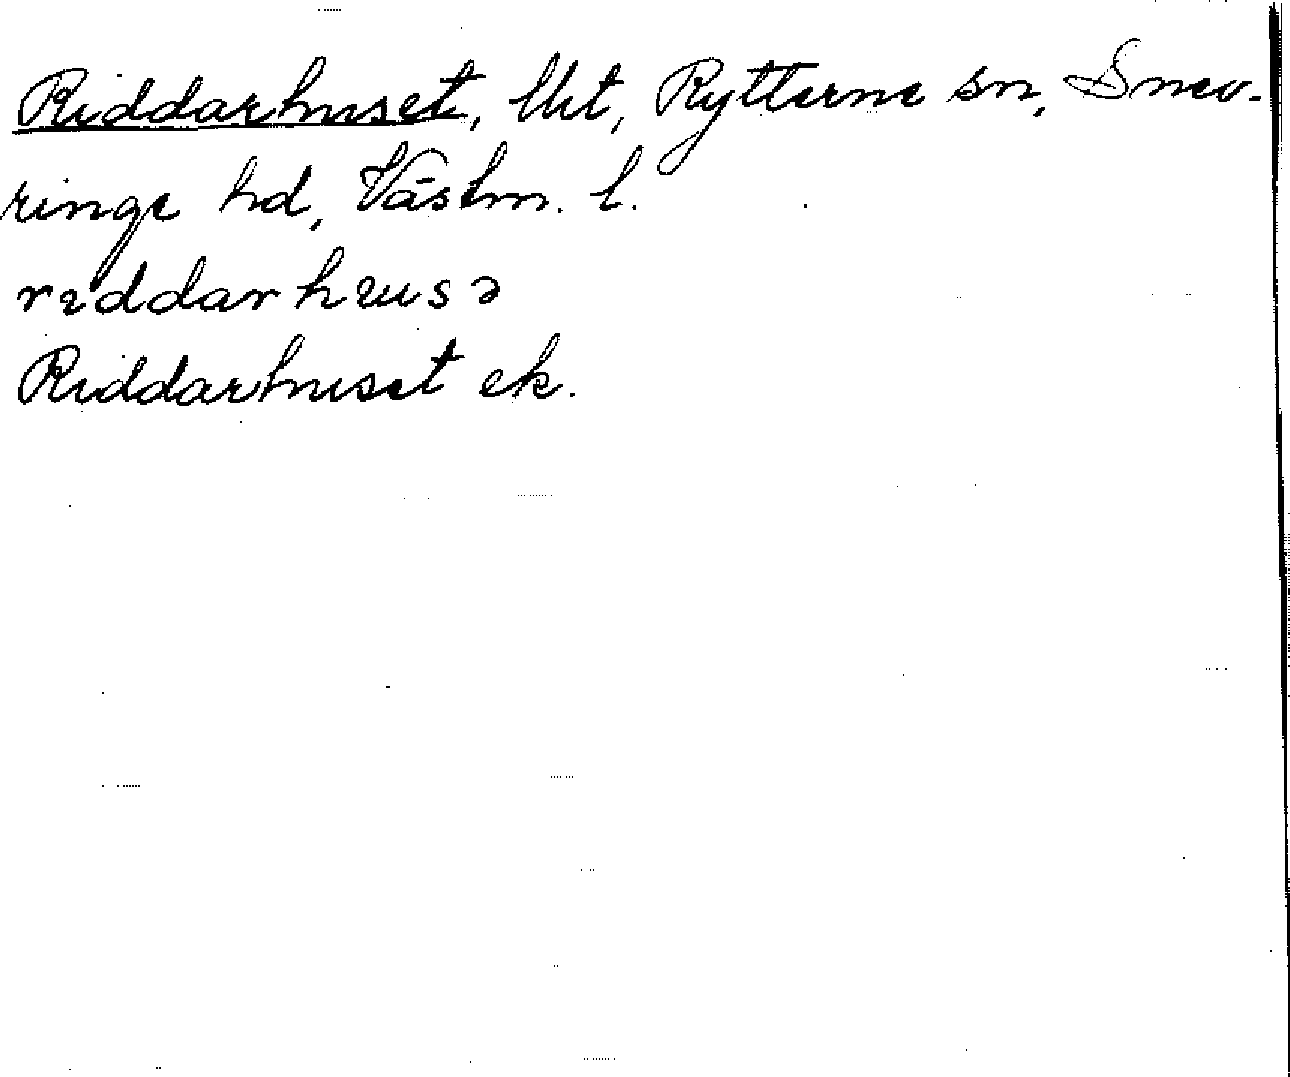 Riddarhuset, lht, Rytterne sn, Snev-
ringe hd, Västm. l.
rıddarhɯsə
Riddarhuset ek.